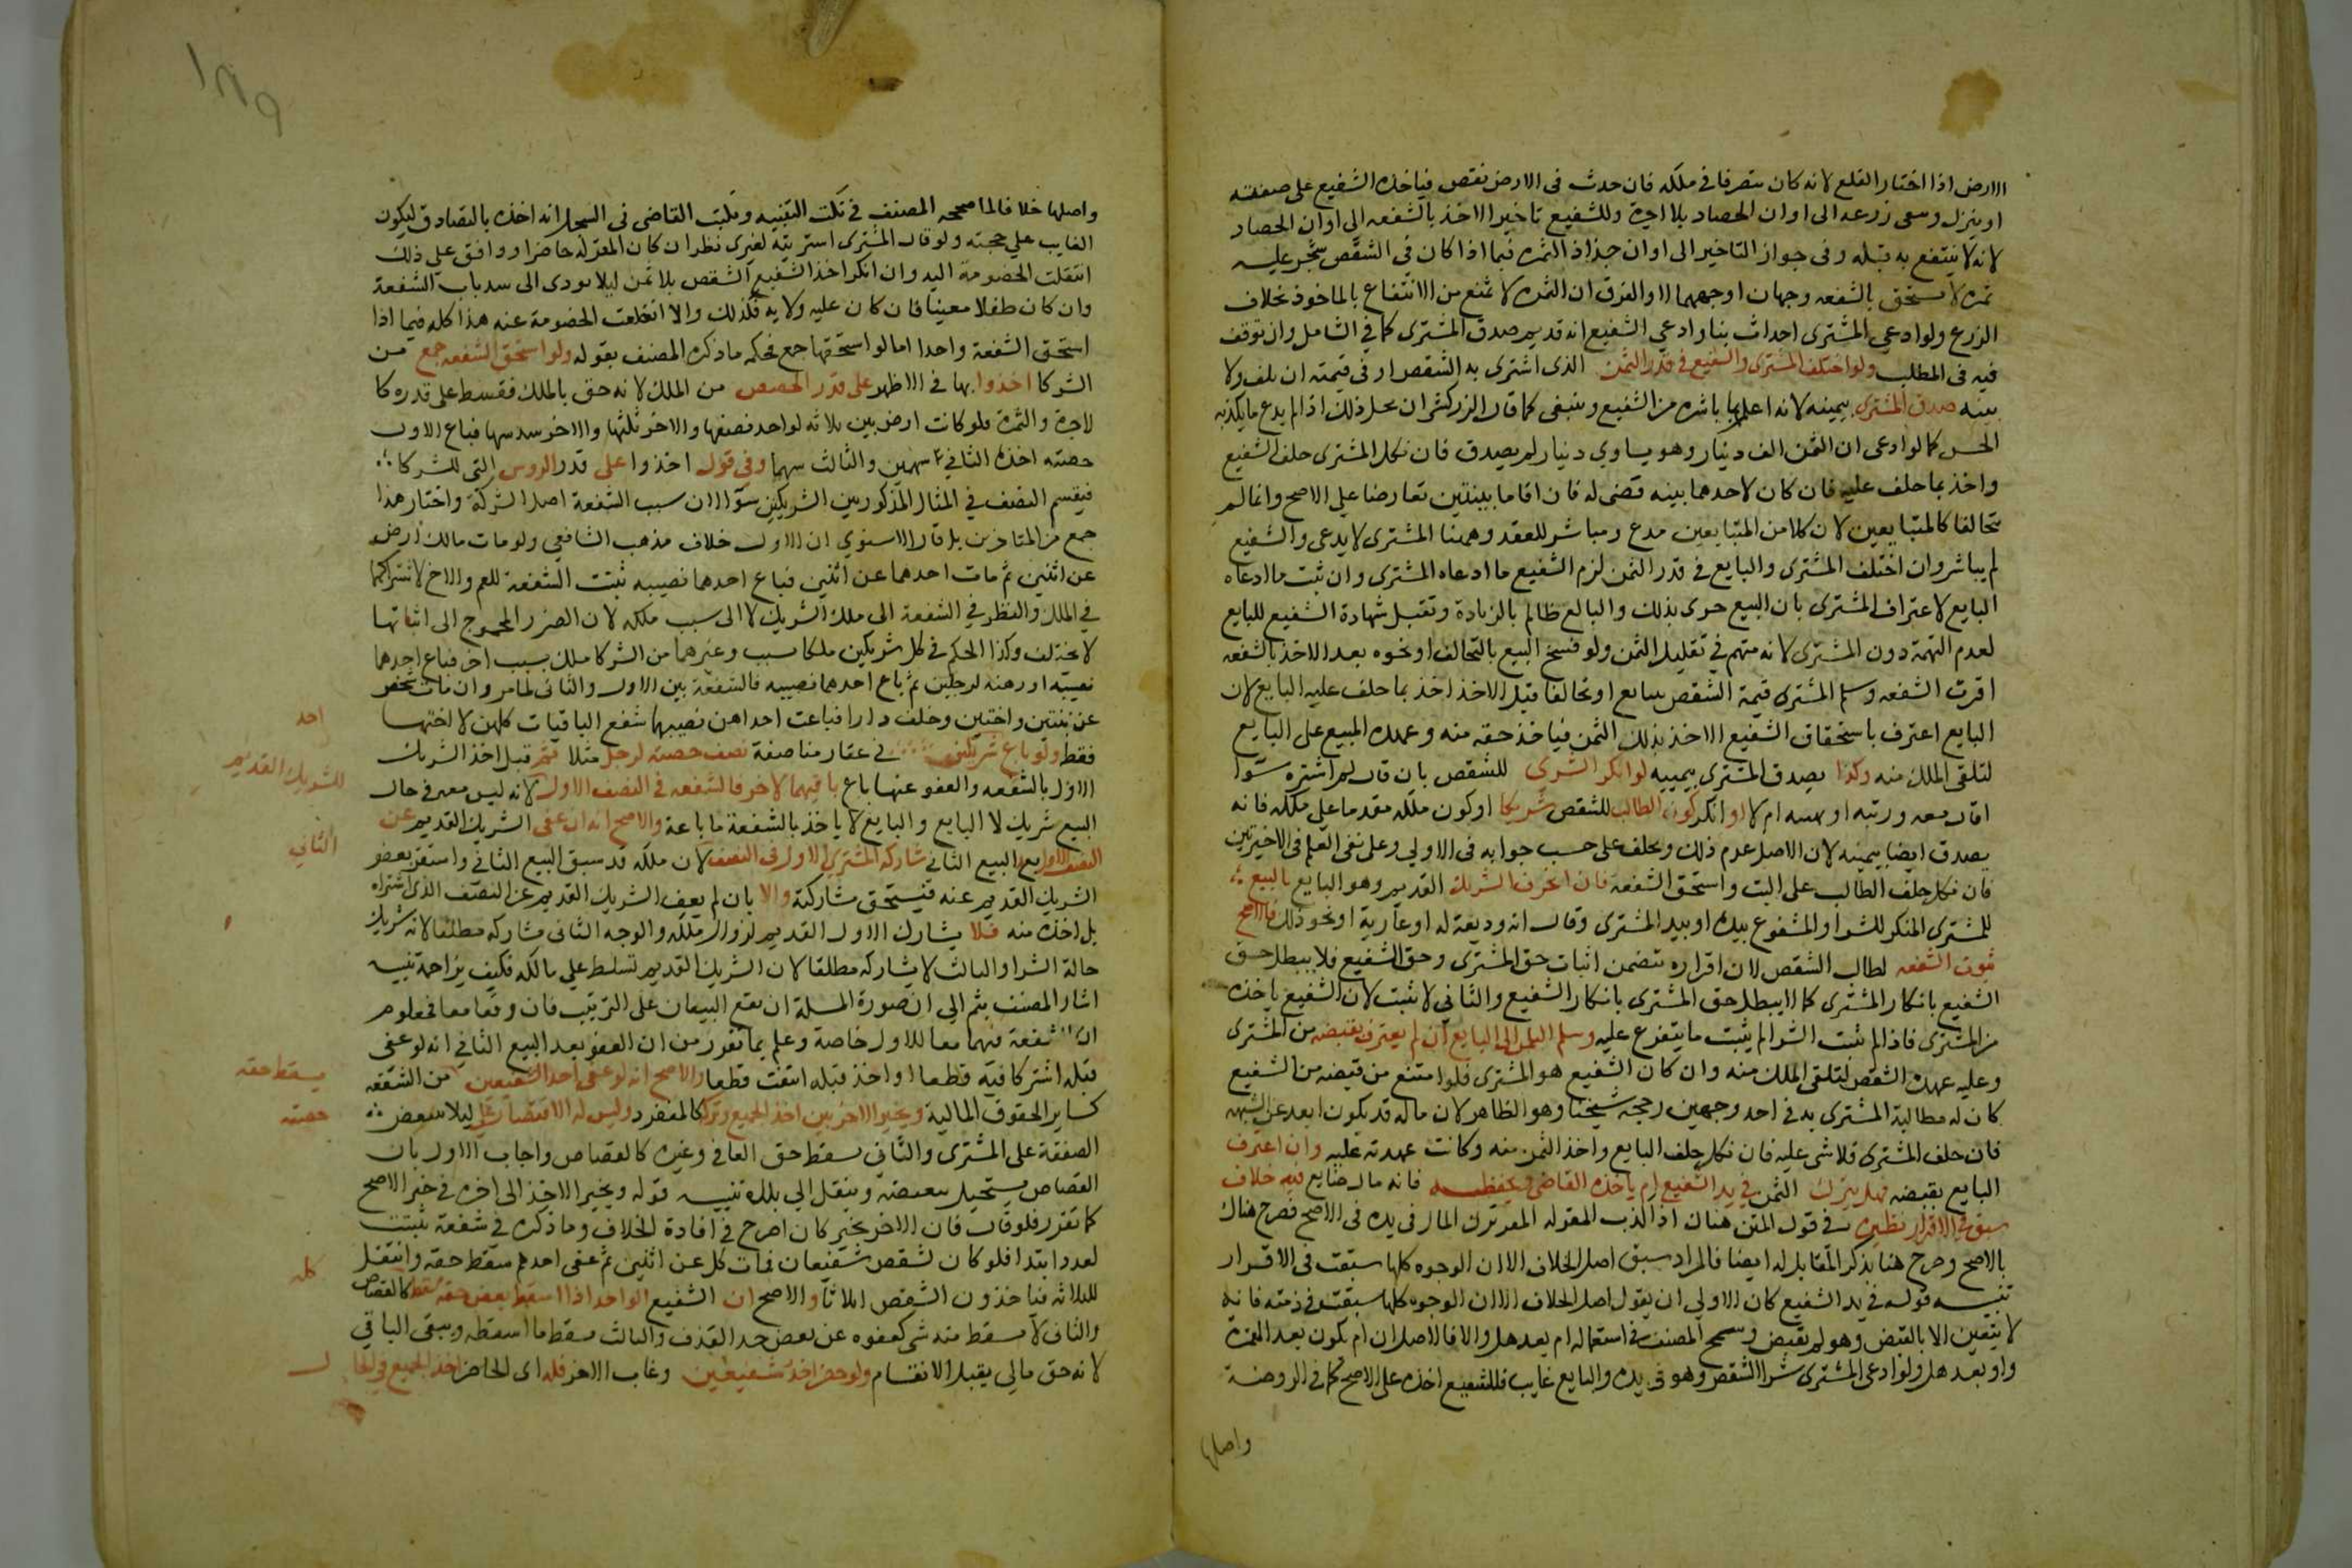 الارض اذا اختار القلع لانه كان متصرفا في ملكه فان حدث في الارض نقص فياخذه الشفيع على صفته
او يترك وسعى زرعه الى اوان الحصاد بلا اجرة وللشفيع تاخير الاخذ بالشفعه الى اوان الحصاد
لانه لا ينتفع به قبله وفى جواز التاخير الى اوان جذاذ الثمره فيما اذا كان في الشقص شجر عليه
ثمره لا تستحق بالشفعه وجهان اوجههما لا والفرق ان الثمره لا تمنع من الانتفاع بالماخوذ بخلاف
الزرع ولو ادعى المشترى احداث بنا وادعى الشفيع انه قديم صدق المشترى كما في الشامل وان توقف
فيه في المطلب ولو اختلف المشترى والشفيع في قدر الثمن الذى اشترى به الشقص او في قيمته ان تلف ولا
بينه صدق المشترى بيمينه لانه اعلم بما باشره من الشفيع وينبغى كما قال الزركشى ان محل ذلك اذا لم يدع ما يكذبه
الحس كما لو ادعى ان الثمن الف دينار وهو يساوي دينار لم يصدق فان نكل المشترى حلف الشفيع
واخذ بما حلف عليه فان كان لاحدهما بينه قضى له فان اقاما بينتين تعارضا على الاصح وانما لم
يتحالفا كالمتبايعين لان كلا من المتبايعين مدع ومباشر للعقد وهمنا المشترى لا يدعى والشفيع
لم يباشر وان اختلف المشترى والبايع في قدر الثمن لزم الشفيع ما ادعاه المشترى وان ثبت ما ادعاه
البايع لاعتراف المشترى بان البيع جرى بذلك والبايع ظالم بالزيادة وتقبل شهادة الشفيع للبايع
لعدم التهمة دون المشترى لانه متهم في تقليل الثمن ولو فسخ البيع بالتحالف او نحوه بعد الاخذ بالشفعه
اقرت الشفعه وسلم المشترى قيمة الشقص للبايع او تحالفا قبل الاخذ اخذ بما حلف عليه البايع لان
البايع اعترف باستحقاق الشفيع الاخذ بذلك الثمن فياخذ حقه منه وعهدة المبيع على البايع
لتلقى الملك منه وكذا يصدق المشترى بيمينه لو انكر الشرى للشقص بان قال لم اشتره سوا
اقال معه ورثته او اتهبته ام لا او انكر كون الطالب للشقص شريكا او كون ملكه مقدما على ملكه فانه
يصدق ايضا بيمينه لان الاصل عدم ذلك ويحلف على حسب جوابه في الاولى وعلى نفى العلم في الاخيرتين
فان نكل حلف الطالب على البت واستحق الشفعة فان اعترف الشريك القديم وهو البايع بالبيع
للمشترى المنكر للشرا والمشفوع بيده او بيد المشترى وقال انه وديعة له او عارية او نحو ذلك فالاصح
ثبوت الشفعه لطالب الشقص لان اقراره يتضمن اثبات حق المشترى وحق الشفيع فلا يبطل حق
الشفيع بانكار المشترى كما لا يبطل حق المشترى بانكار الشفيع والثاني لا تثبت لان الشفيع ياخذه
من المشترى فاذا لم تثبت الشرا لم يثبت ما يتفرع عليه وسلم الثمن الى البايع ان لم يعترف بقبضه من المشترى
وعليه عهدة الشقص لتلقى الملك منه وان كان الشفيع هو المشترى فلو امتنع من قبضه من الشفيع
كان له مطالبة المشترى به في احد وجهين رجحه شيخنا وهو الظاهر لان ماله قد يكون ابعد عن الشبهه
فان حلف المشترى فلا شى عليه فان نكل حلف البايع واخذ الثمن منه وكانت عهدته عليه وان اعترف
البايع بقبضه فهل يترك الثمن في يد الشفيع ام ياخذه القاضى ويحفظه فانه مال ضايع فيه خلاف
سبق في الاقرار نظيره في قول المتن هناك اذا كذب المقر له المقر ترك المال في يده في الاصح فصرح هناك
بالاصح وصرح هنا بذكر المقابل له ايضا فالمراد سبق اصل الخلاف الا ان الوجوه كلها سبقت في الاقرار
تنبيه قوله في يد الشفيع كان الاولى ان يقول اصل الخلاف الا ان الوجوه كلها سبقت في ذمته فانه
لا يتعين الا بالقبض وهو لم يقبض وسمح المصنف في استعماله ام بعد هل والا فالاصل ان ام تكون بعد الهمزة
واو بعد هل ولو ادعى المشترى شرا الشقص وهو في يده والبايع غايب فللشفيع اخذه على الاصح كما في الروضة
واصلها
١٨٩
واصلها خلافا لما صححه المصنف في نكت التنبيه ويكتب القاضى في السجل انه اخذه بالتصادق ليكون
الغايب على حجته ولو قال المشترى اشتريته لغيرى نظر ان كان المقر له حاضرا ووافق على ذلك
انتقلت الخصومة اليه وان انكر اخذ الشفيع الشقص بلا ثمن ليلا يودى الى سد باب الشفعة
وان كان طفلا معينا فان كان عليه ولايه فكذلك والا انقطعت الخصومة عنه هذا كله فيما اذا
استحق الشفعة واحد اما لو استحقها جمع فحكمه ما ذكره المصنف بقوله ولو استحق الشفعه جمع من
الشركا اخذوا بها في الاظهر على قدر الحصص من الملك لانه حق بالملك فقسط على قدره كا
لاجرة والثمرة فلو كانت ارض بين ثلاثه لواحد نصفها والاخر ثلثها والاخر سدسها فباع الاول
حصته اخذه الثاني سهمين والثالث سهما وفي قول اخذوا على قدر الروس التى للشركا
فيقسم النصف في المثال المذكور بين الشريكين سوا لان سبب الشفعة اصل الشركة واختار هذا
جمع من المتاخرين بل قال الاسنوي ان الاول خلاف مذهب الشافعى ولو مات مالك ارض
عن اثنين ثم مات احدهما عن اثنين فباع احدهما نصيبه ثبتت الشفعة للعم والاخ لاشتراكهما
في الملك والنظر في الشفعة الى ملك الشريك لا الى سبب ملكه لان الضرر المحوج الى اثباتها
لا يختلف وكذا الحكم في كل شريكين ملكا بسبب وغيرهما من الشركا ملك بسبب اخر فباع احدهما
نصيبه او رهنه لرجلين ثم باع احدهما نصيبه فالشفعة بين الاول والثانى لما مر وان مات شخص
عن بنتين واختين وخلف دارا فباعت احداهن نصيبها شفع الباقيات كلهن لا اختها
فقط ولو باع شريكين في عقار مناصفة نصف حصته لرجل مثلا ثم قبل اخذ الشريك
الاول بالشفعه والعفو عنها باع باقيهما لاخر فالشفعه في النصف الاول لانه ليس معه في حال
البيع شريك لا البايع والبايع لا ياخذ بالشفعة ما باعه والاصح انه ان عفى الشريك القديم عن
النصف الاول بعد البيع الثانى شاركه المشترى الاول في النصف لان ملكه قد سبق البيع الثانى واستقر بعفو
الشريك القديم عنه فيستحق مشاركته والا بان لم يعف الشريك القديم عن النصف الذى اشتراه
بل اخذه منه فلا يشارك الاول القديم لزوال ملكه والوجه الثانى مشاركه مطلقا لانه شريك
حالة الشرا والثالث لا يشاركه مطلقا لان الشريك القديم تسلط على مالكه فكيف يزاحمه تنبيه
اشار المصنف بثم الى ان صورة المسلة ان يقع البيعان على الترتيب فان وقعا معا فمعلوم
ان الشفعة فيهما معا للاول خاصة وعلم بما تقرر من ان العفو بعد البيع الثاني انه لو عفى
قبله اشتركا فيه قطعا او اخذ قبله انتفت قطعا والاصح انه لو عفى احد الشفيعين من الشفعه
كساير الحقوق المالية ويخير الاخر بين اخذ الجميع وتركه كالمنفرد وليس له الاقتصار على ليلا تتبعض
الصفقة على المشترى والثاني يسقط حق العافى وغيره كالقصاص واجاب الاول بان
القصاص يستحيل تبعيضه وينتقل الى بدله تنبيه قوله ويخير الاخر الى اخره في خبر الاصح
كما تقرر فلو قال فان الاخر يخير كان اصرح في افادة الخلاف وما ذكره في شفعة ثبتت
لعدد ابتدا فلو كان لشقص شفيعان فمات كل عن اثنين ثم عفى احدهم سقط حقه وانتقل
للثلاثه فياخذون الشقص اثلاثا والاصح ان الشفيع الواحد اذا اسقط بعض حقه سقط كالقصاص
والثانى لا يسقط منه شى كعفوه عن بعض حد القذف والثالث يسقط ما اسقطه ويبقى الباقي
لانه حق مالي يقبل الانقسام ولو حضر احد شفيعين وغاب الاخر فله اى الحاضر اخذ الجميع في الحا
احد
الشريك القديم
الثاني
يسقط حقه
حصته
كله
ل